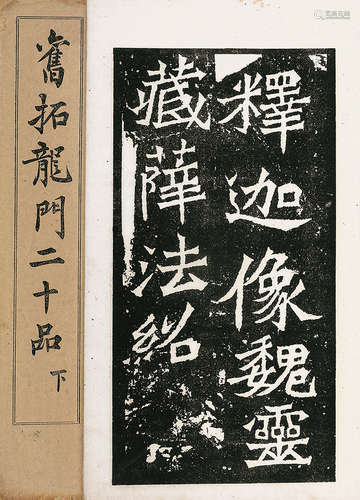 舊拓龍門二十品 下
釋迦像魏靈
藏薛法紹